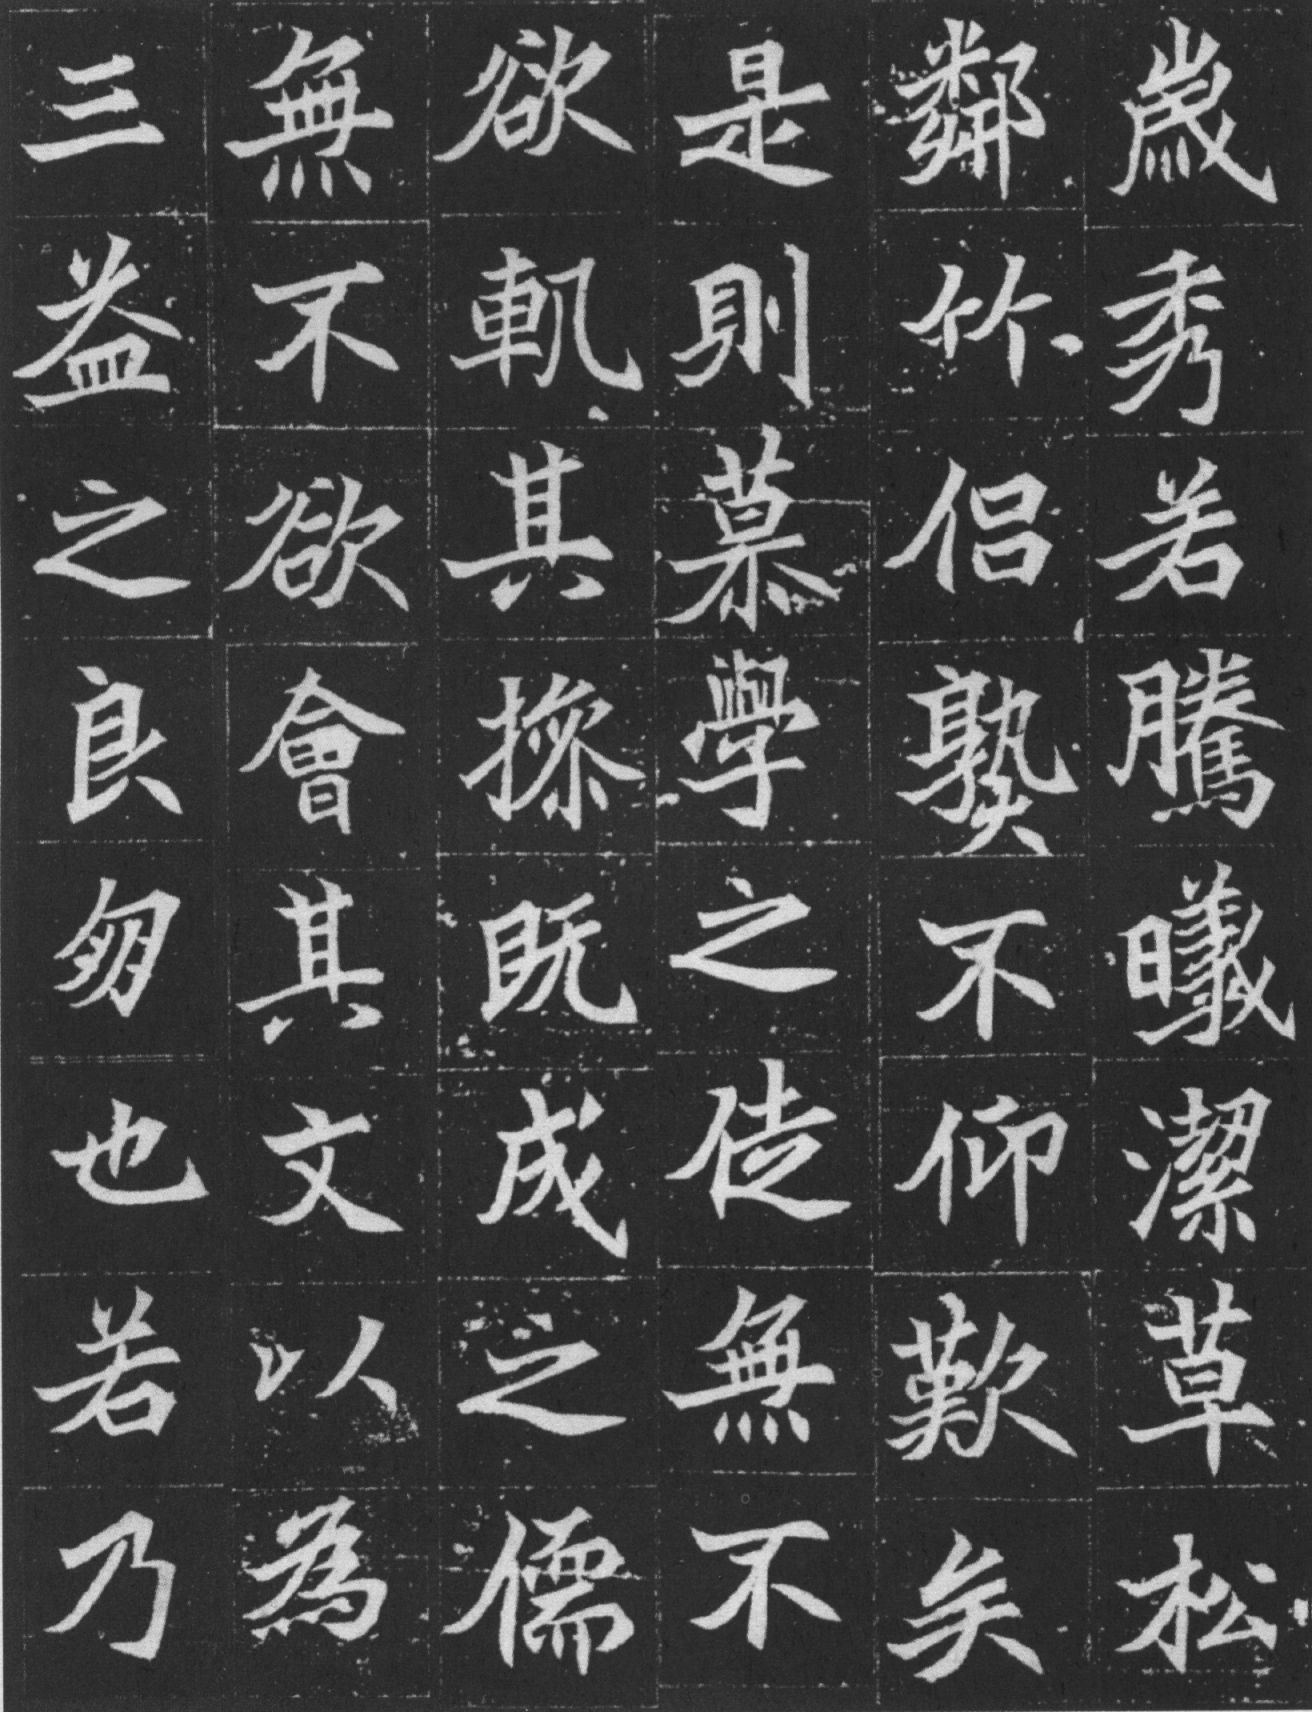 嵗秀若騰曦潔草松
鄰竹侣孰不仰歎矣
是則慕學之徒無不
欲軌其操既成之儒
無不欲會其文以為
三益之良朋也若乃